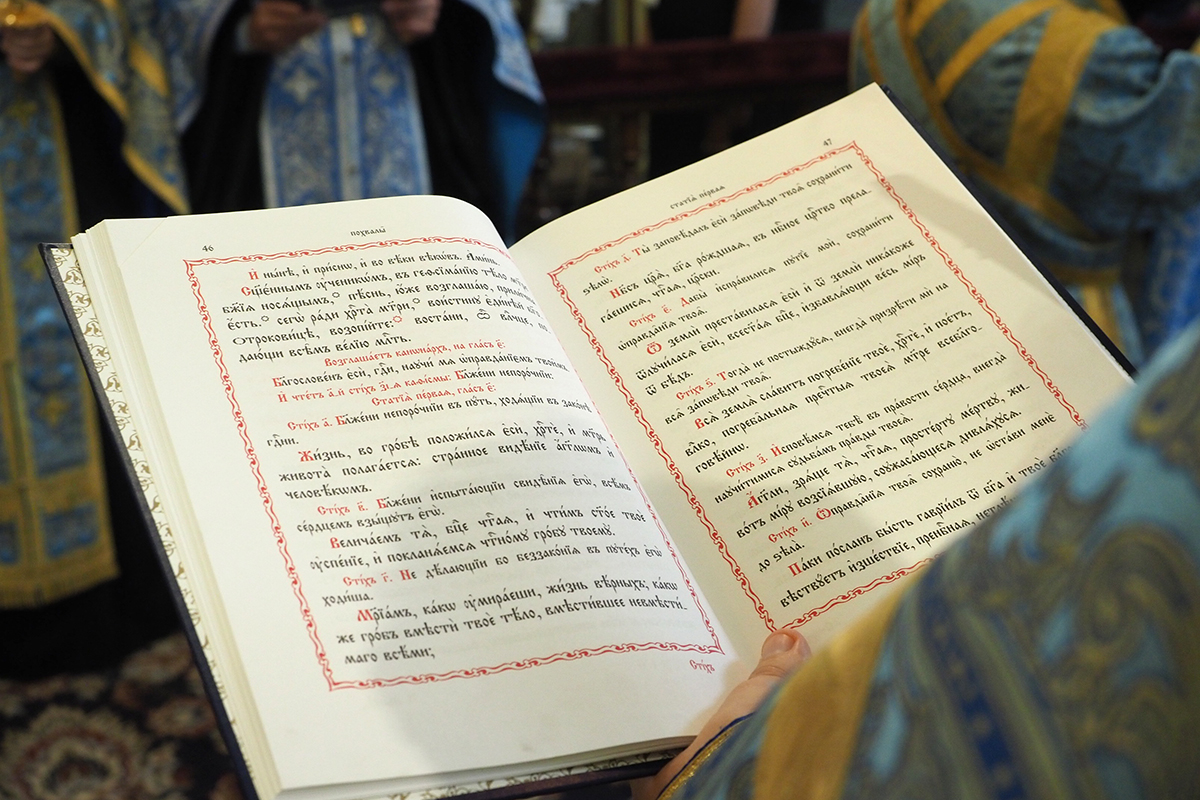 46
похвалы̀
И҆ ны́нѣ, и҆ при́снѡ, и҆ во вѣ́ки вѣкѡ́въ. А҆ми́нь.
Сщ҃е́ннымъ ᲂу҆ченикѡ́мъ, въ геѳсїма́нїю тѣ́ло
бж҃їѧ носѧ́щымъ, пѣ́снь, ю҆́же возглаша́ю,
є҆́сть. сегѡ̀ ра́ди хр҃та̀ мт҃ри, вои́стинꙋ є҆ди́нѣй
ѻ҆трокови́цѣ, возопі́йте: воста́ни, ѽ влⷣчце,
даю́щи всѣ̑мъ ве́лїю млⷭ҇ть.
Возглаша́етъ канона́рхъ, на гла́съ є҃:
Блгⷭ҇ове́нъ є҆сѝ, гдⷭ҇и, наꙋчи́ мѧ ѡ҆правда́нїємъ твои̑мъ.
И҆ чте́тъ а҃-й сті́хъ з҃і-ѧ каѳі́смы: Бл҃же́ни непоро́чнїи:
Статїѧ̀ пе́рваѧ, гла́съ є҃:
Сті́хъ а҃. Бл҃же́ни непоро́чнїи въ пꙋ́ть, ходѧ́щїи въ зако́нѣ
гдⷭ҇ни.
Жи́знь, во гро́бѣ положи́лсѧ є҆сѝ, хрⷭ҇тѐ, и҆ мт҃ри
живота̀ полага́етсѧ: стра́нное видѣ́нїе а҆́гг҃лѡмъ и҆
человѣ́кѡмъ.
Сті́хъ в҃. Бл҃же́ни и҆спыта́ющїи свидѣ̑нїѧ є҆гѡ̀, всѣ́мъ
се́рдцемъ взы́щꙋтъ є҆гѡ̀.
Велича́емъ тѧ̀, бц҃е чтⷭ҇аѧ, и҆ чти́мъ ст҃о́е твоѐ
ᲂу҆спе́нїе, и҆ покланѧ́емсѧ чтⷭ҇но́мꙋ гро́бꙋ твоемꙋ̀.
Сті́хъ г҃. Не дѣ́лающїи бо беззако́нїѧ въ пꙋте́хъ є҆гѡ̀
ходи́ша.
Мр҃їа́мъ, ка́кѡ ᲂу҆мира́еши, жи́знь вѣ́рныхъ, ка́кѡ
же гро́бъ вмѣстѝ твоѐ тѣ́ло, вмѣсти́вшее невмѣсти́-
маго всѣ́ми;
Сті́хъ
47
статїѧ̀ пе́рваѧ
Сті́хъ д҃. Ты̀ заповѣ́далъ є҆сѝ за́пѡвѣди твоѧ̑ сохрани́ти
ѕѣлѡ̀.
Нб҃съ цр҃ѧ̀, бг҃а ро́ждшаѧ, въ нбⷭ҇ное црⷭ҇тво преⷣла-
га́ешисѧ, чтⷭ҇аѧ, црⷭ҇ки.
Сті́хъ є҃. Дабы̀ и҆спра́вилисѧ пꙋтїѐ моѝ, сохрани́ти
ѡ҆правда̑нїѧ твоѧ̑.
Ѿ землѝ преста́вльшаѧсѧ є҆сѝ и҆ ѿ землѝ ника́коже
ѿлꙋчи́ласѧ є҆сѝ, всест҃а́ѧ бц҃е, и҆збавлѧ́ющи ве́сь мі́ръ
ѿ бѣ́дъ.
Сті́хъ ѕ҃. Тогда̀ не постыжꙋ́сѧ, внегда̀ призрѣ́ти мѝ на
всѧ̑ за́пѡвѣди твоѧ̑.
Всѧ̀ землѧ̀ сла́витъ погребе́нїе твоѐ, хрⷭ҇тѐ, и҆ пое́тъ,
влⷣко, погреба̑льнаѧ пречⷭ҇тыѧ твоеѧ̀ мт҃ре всебл҃го-
говѣ́йнѡ.
Сті́хъ з҃. И҆сповѣ́мсѧ тебѣ̀ въ пра́вости се́рдца, внегда̀
наꙋчи́тимисѧ сꙋдба́мъ пра́вды твоеѧ̀.
А҆́гг҃ли, зрѧ́ще тѧ̀, чтⷭ҇аѧ, просте́ртꙋ ме́ртвꙋ, жи-
во́тъ мі́рꙋ возсїѧ́вшꙋю, соꙋжаса́ющесѧ дивлѧ́хꙋсѧ.
Сті́хъ и҃. Ѡ҆правда̑нїѧ твоѧ̑ сохраню̀, не ѡ҆ста́ви менѐ
до ѕѣла̀.
Па́ки по́сланъ бы́сть гаврїи́лъ ѿ бг҃а и҆ твоѐ
вѣ́ствꙋетъ и҆зше́ствїе, препⷣбнаѧ,